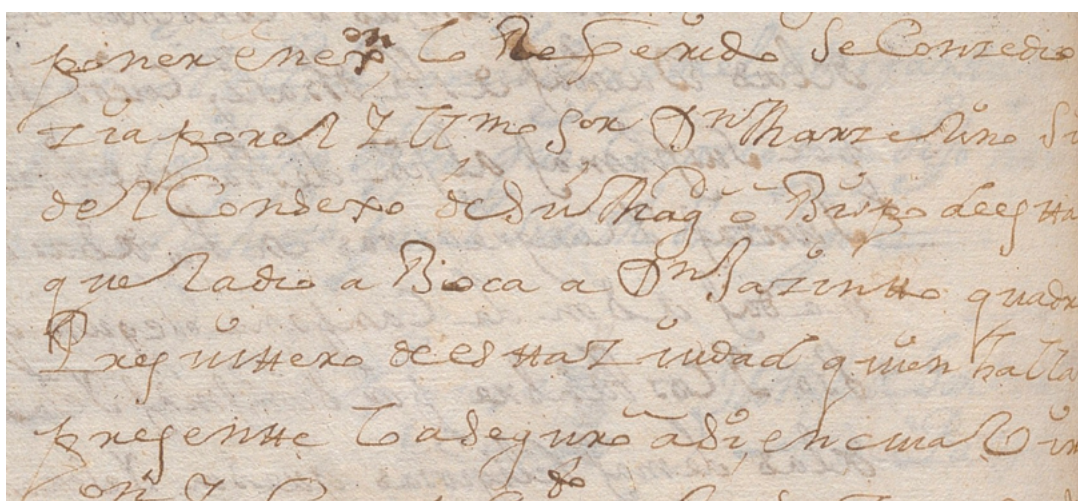 poner en el referido se Conzedio
zia por el Yllmo Sor Dn Marzelino Si
del Consexo de Su Magd Obispo de esta
que la dio a Boca a Dn Jazintto quadr
Presvittero de estta Ziudad quien halla
presentte Y aseguro